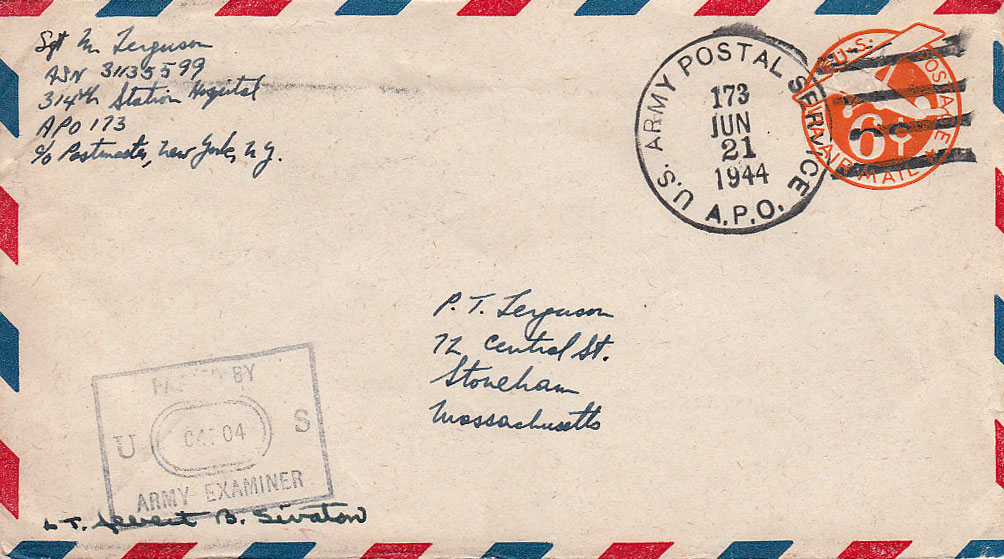 Sgt M Ferguson
ASN 31135599
314th Station Hospital
APO 173
c/o Postmaster, New York, N.Y.
U.S. ARMY POSTAL SERVICE
173
JUN
21
1944
A.P.O.
U.S. POSTAGE
6¢
VIA AIR MAIL
P. T. Ferguson
72 Central St.
Stoneham
Massachusetts
PASSED BY
U S
ARMY EXAMINER
LT. B.